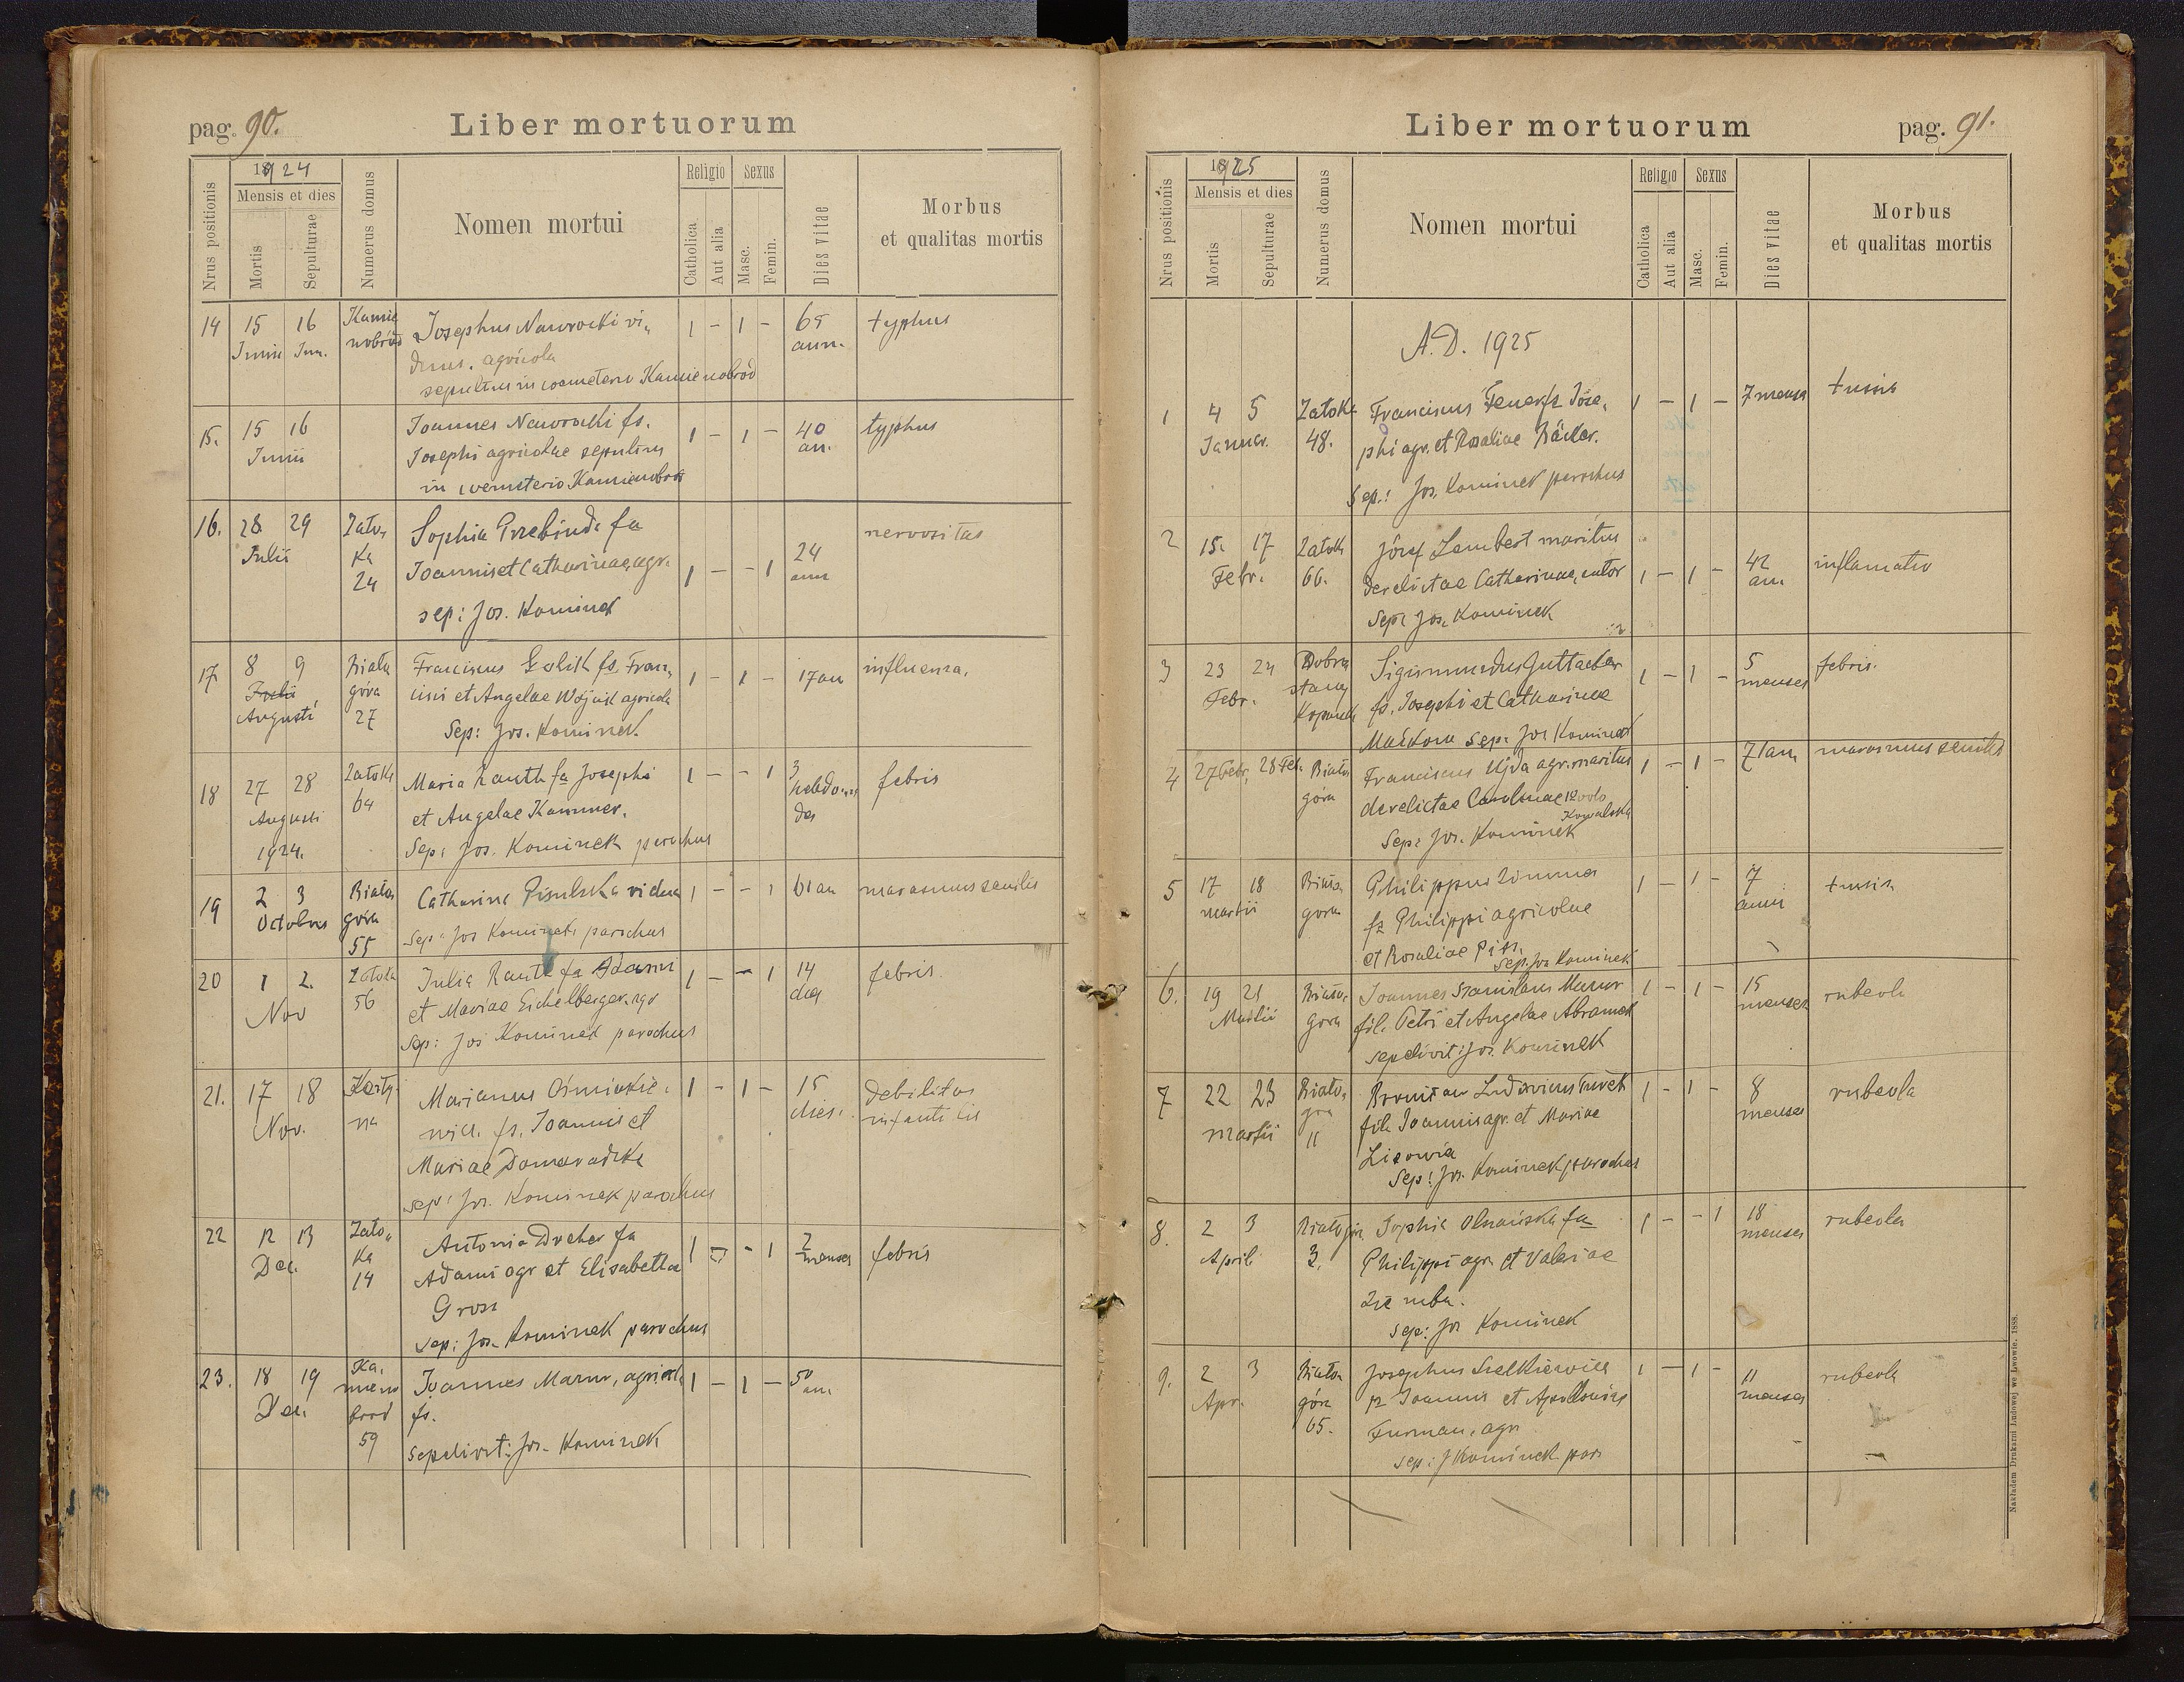 pag. 90.
Liber mortuorum
1924
Nrus positionis
Mensis et dies
Mortis
Sepulturae
Numerus domus
Nomen mortui
Religio
Catholica
Aut alia
Sexus
Masc.
Femin.
Dies vitae
Morbus
et qualitas mortis
14 15 16 Kamie Josephus Nawrocki vi, 1 - 1 - 65 typhus
Junii Jun. nobród duus. agricola ann.
sepultus in coemeterio Kamienobrod
15. 15 16 Joannes Nawrocki fs. 1 - 1 - 40 typhus
Junii Josephi agricolae sepultus an.
in coemeterio Kamienobrod
16. 28 29 Zato, Sophia Grzebinda fa nervositas
Julii ka Joannis et Catharinae, agr. 1 - - 1 24
24 sep: Jos. Kominek ann
17 8 9 Biała Franciscus Golik fs. Fran, 1 - 1 - 17 an influenza,
Julii góra cisci et Angelae Wójcik agricola
Augusti 27 Sep: Jos. Kominek.
18 27 28 Zatoka Maria Rauth fa Josephi 1 - - 1 3 febris
Augusti 64 et Angelae Kammer. hebdoma
1924. Sep: Jos. Kominek parochus des
19 2 3 Biała Catharina vidua 1 - - 1 61 an marasmus senilis
Octobris góra Sep: Jos Kominek parochus
55
20 1 2. Zatoka Julia Rauth fa Adami 1 - - 1 14 febris
Nov 56 et Mariae Eichelberger. agr dies
Sep: Jos Kominek parochus
21. 17 18 Karty- Marianus Ośmiakie, 1 - 1 - 15 debilitas
Nov. na wicz. fs. Joannis et dies. infantilis
Mariae Domaradzka
sep: Jos. Kominek parochus
22 12 13 Zato, Antonia Dreher fa 1 - - 1 2 febris
Dec. ka Adami agr et Elisabetta menses
14 Gross
sep: Jos. Kominek parochus
23. 18 19 Ka, Joannes Mazur, agricola 1 - 1 - 50
Dec. mieno fs. an.
brod sepelivit: Jos. Kominek
59
Liber mortuorum
pag. 91.
1925
Nrus positionis
Mensis et dies
Mortis
Sepulturae
Numerus domus
Nomen mortui
Religio
Catholica
Aut alia
Sexus
Masc.
Femin.
Dies vitae
Morbus
et qualitas mortis
A.D. 1925
1 4 5 Zatoka Franciscus fs Jose, 1 - 1 - 7 menses tussis
Januar. 48. phi agr. et Rosaliae Bäcker.
Sep.: Jos. Kominek parochus
2 15. 17 Zatoka Józef Lambert maritus 42 inflamatio
Febr. 66. derelictae Catharinae, sutor 1 - 1 - an.
Sep: Jos. Kominek
3 23 24 Dobro Sigismundus Guttaeter 1 - 1 - 5 febris.
Febr. stany fs. Josephi et Catharinae menses
Maćkow sep: Jos Kominek
4 27 Febr. 28 Febr. Biała Franciscus Ujda agr. maritus 1 - 1 - 71 an marasmus senilis
góra derelictae Carolinae
Kowalska
Sep: Jos. Kominek
5 17 18 Biała Philippus Zimmer 1 - 1 - 7 tussis
martii gora fs Philippi agricolae anni
et Rosaliae
Sep. Jos Kominek
6. 19 21 Biała, Joannes Stanislaus Mazur 1 - 1 - 15 rubeola
Martii gora fil. Petri et Angelae Abramek menses
sepelivit: Jos. Kominek
7 22 23 Biało, Bronislaus Ludovicus Turek 1 - 1 - 8 rubeola
martii gora fil. Joannis agr. et Mariae menses
11 Lisowia
Sep: Jos. Kominek parochus
8. 2 3 Białogóra Sophia Olszańska fa 1 - - 1 18 rubeola
April. 3. Philippi agr. et Valeriae menses
Ziemba.
Sep: Jos Kominek
9. 2 3 Biała Josephus 1 - 1 - 11 rubeola
Apr. góra fs Joannis et Apolloniae menses
65. Furman, agr
sep: J Kominek par.
Nakładem Drukarni Ludowej we Lwowie. 1888.